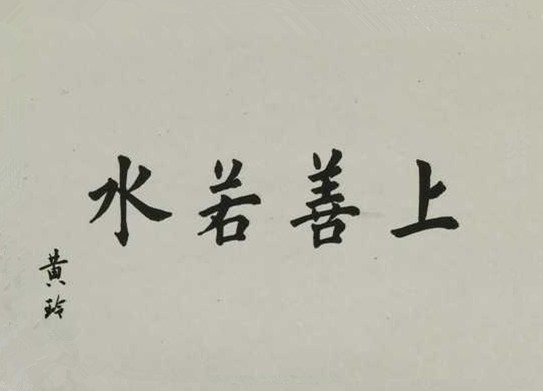 上善若水
黄玲